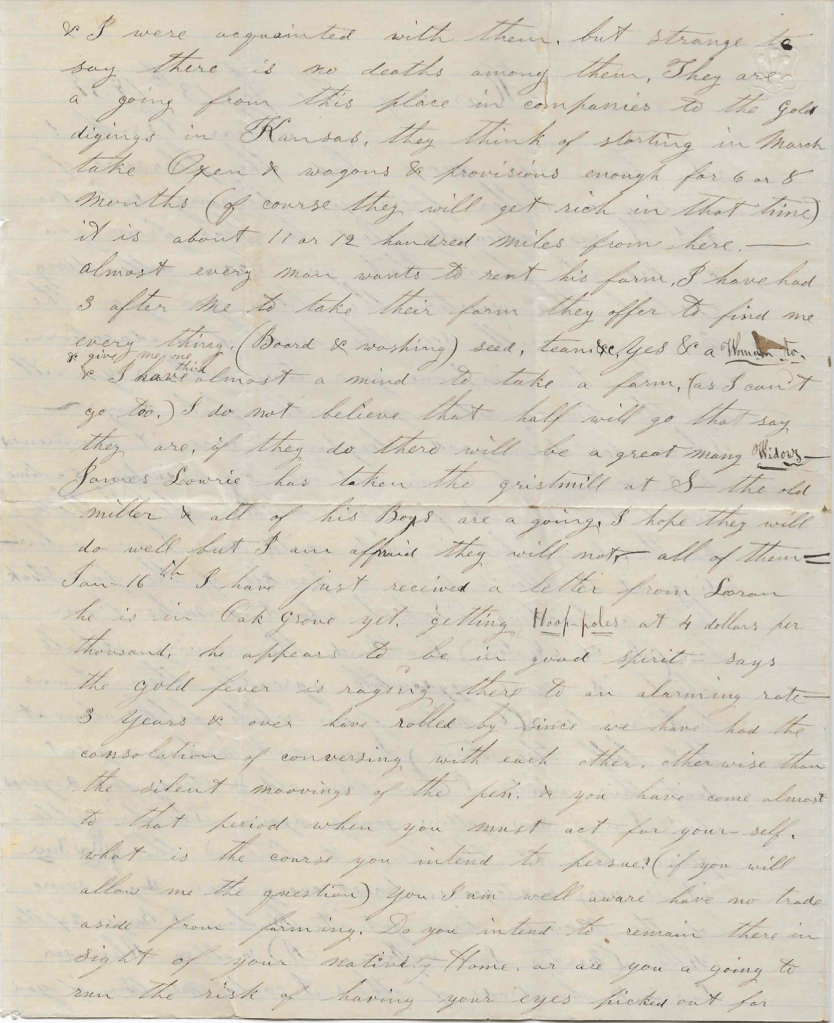 & I were acquainted with them. but strange to
say there is no deaths among them. They are
a going from this place in companies to the Gold
digings in Kansas. they think of starting in March
take Oxen & wagons & provisions enough for 6 or 8
months (of course they will get rich in that time)
it is about 11 or 12 hundred miles from here. —
almost every man wants to rent his farm, I have had
3 after me to take their farm they offer to find me
every thing. (Board & washing) seed, team &c, Yes & a Woman to.
& give my me
& I have think almost a mind to take a farm, (as I can't
go too.) I do not believe that half will go that say
they are, if they do there will be a great many Widows —
James Lowrie has taken the gristmill at S— the old
miller & all of his Boys are a going, I hope they will
do well but I am affraid they will not, — all of them =
Jan— 16th I have just received a letter from Loran
he is in Oak Grove yet. getting Hoop-poles at 4 dollars per
thousand. he appears to be in good spirits— says
the gold fever is raging there to an alarming rate—
3 Years & over have rolled by since we have had the
consolation of conversing with each other. otherwise than
the silent moovings of the pen. & you have come almost
to that period when you must act for your-self.
what is the course you intend to persue? (if you will
allow me the question) you I am well aware have no trade
aside from farming. Do you intend to remain there in
sight of your nativity Home. or are you a going to
run the risk of having your eyes picked out for